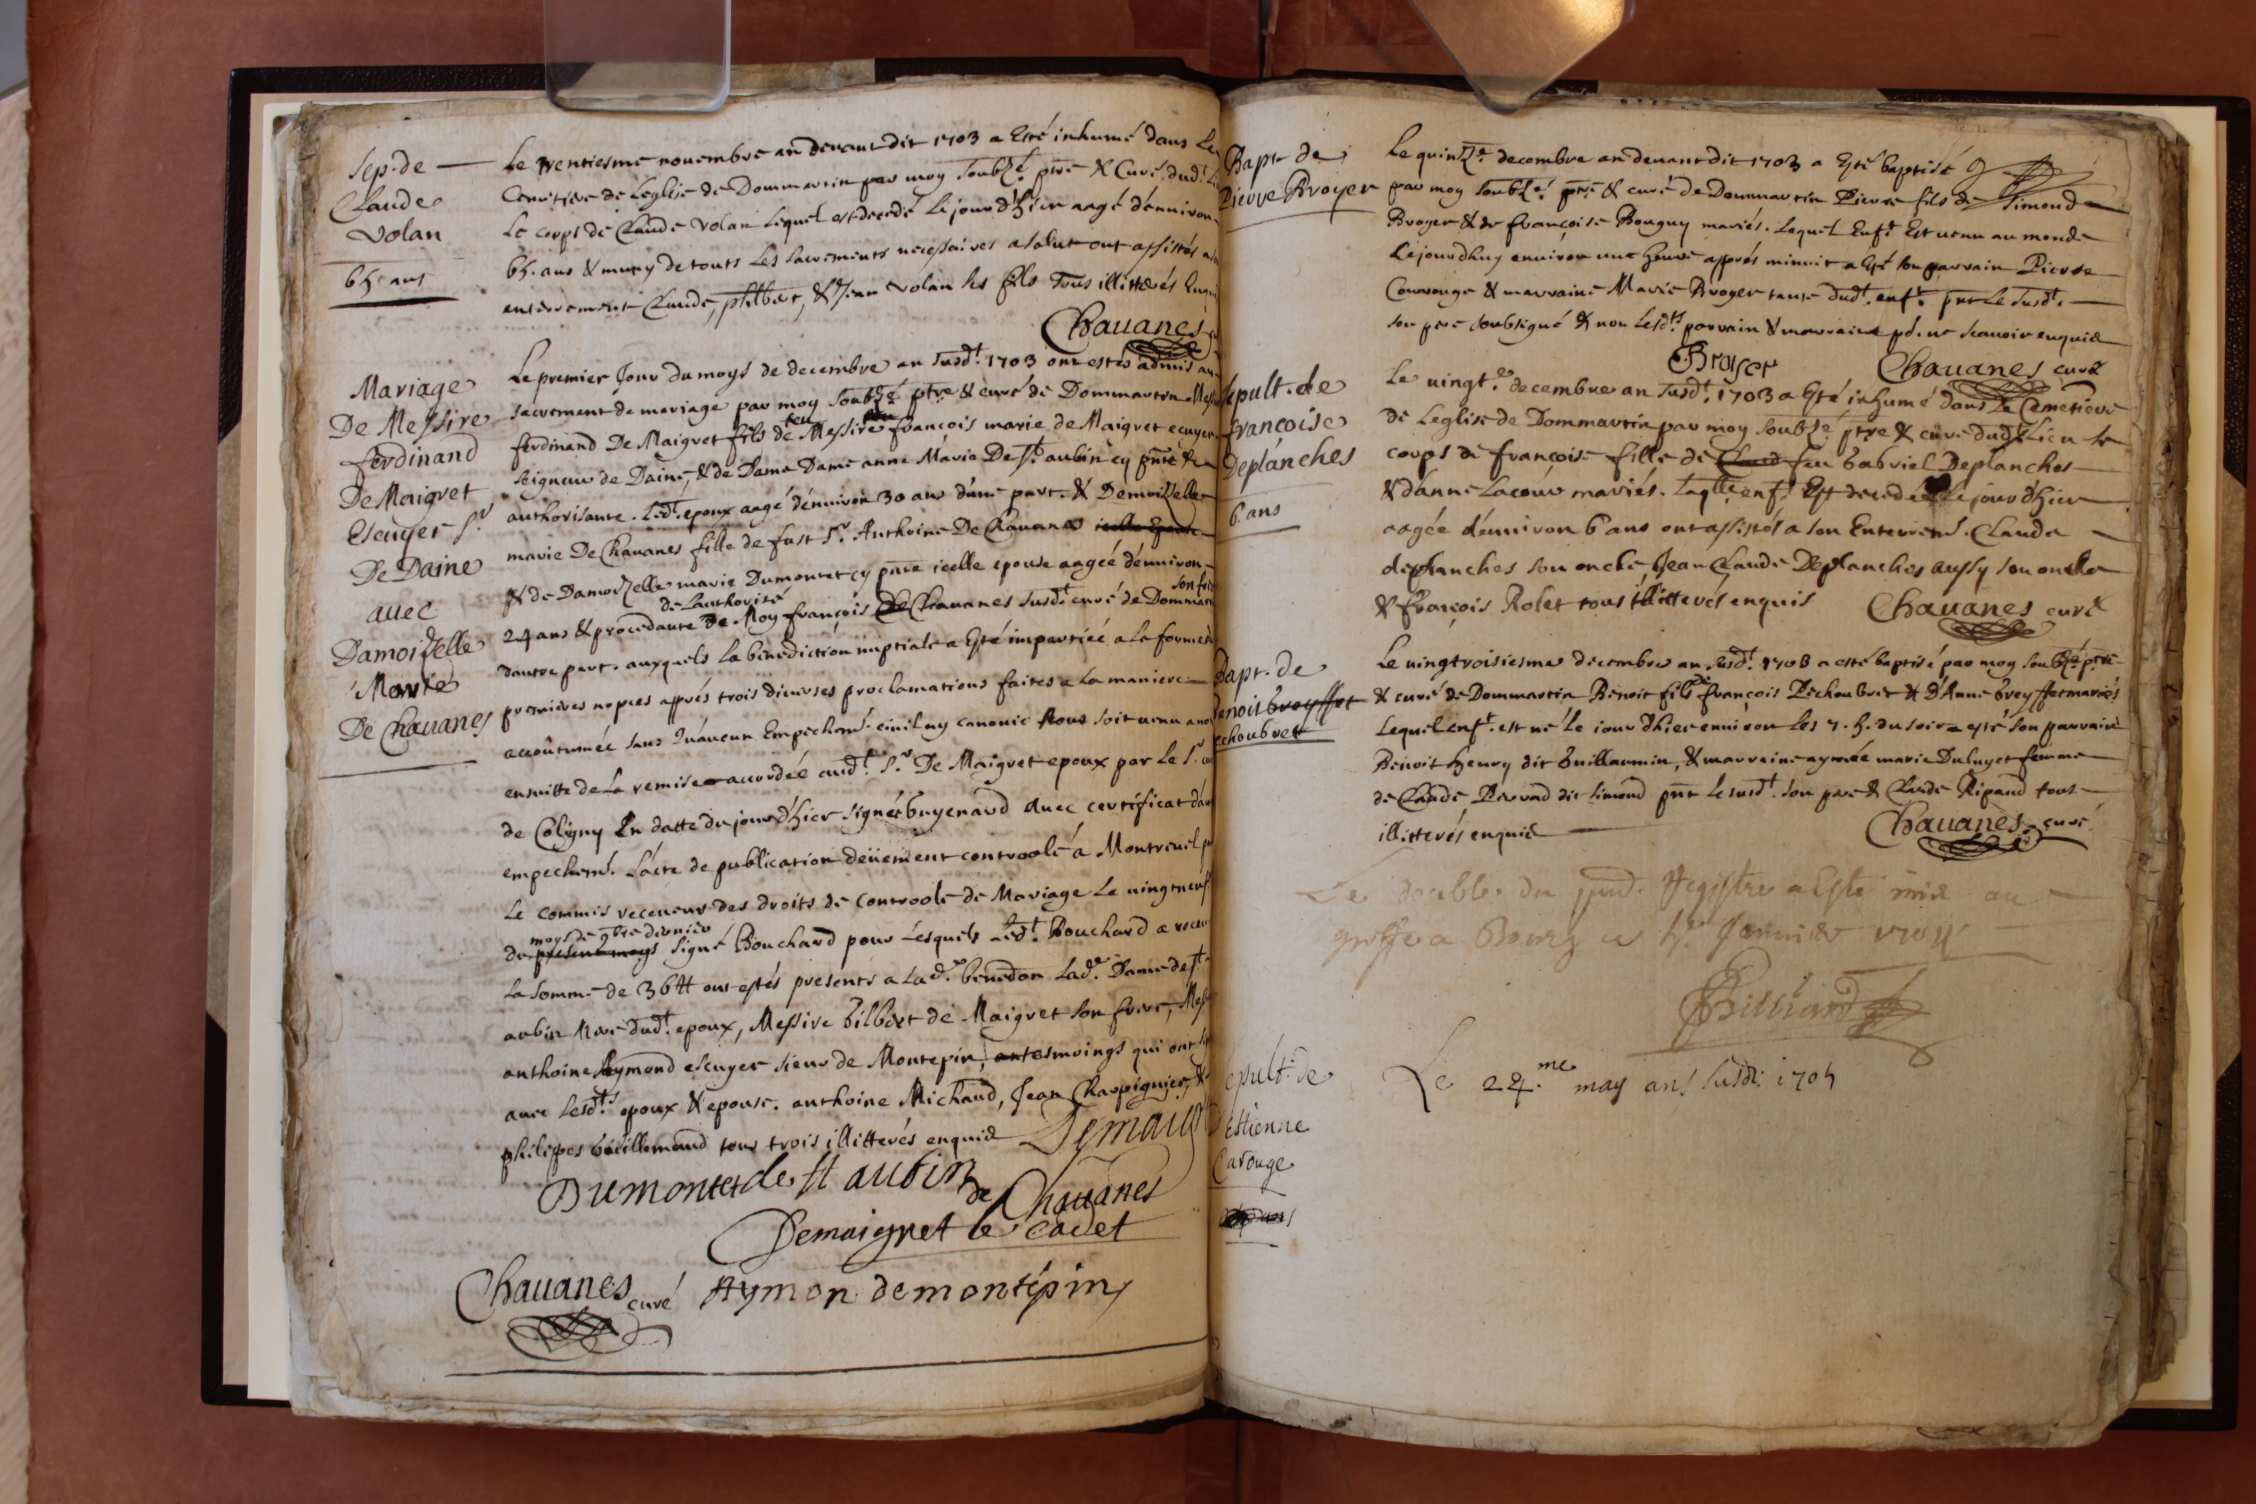 Sep. de
Claude
Volan
65. ans
Le trentiesme nouembre an deuant dit 1703 a Esté inhumé dans Le
Cemetiere de Leglise de Dommartin par moy soubzé. ptre & Curé. dud.t
Le corps de Claude Volan Lequel est decedé Le jour d'hier aagé d'enuiron
65. ans & muny de touts Les sacrements necessaires a salut ont assistés a
enterrement Claude, philbert, & Jean Volan ses fils Tous illitterés
Chauanes
Mariage
De Messire
ferdinand
De Maigret
Escuyer S.r
De Daine
auec
Damoizelle
Marie
De Chauanes
Le premier Jour du moys de decembre an susd.t 1703 ont estés admis au
sacrement de mariage par moy soubzé ptre & curé de Dommartin
ferdinand De Maigret fils de feu Messire françois marie de Maigret ecuyer
seigneur de Daine, & de Dame Dame anne Maria De S.t aubin cy pnte &
authorisante. led.t epoux aagé d'enuiron 30 ans d'une part. & Demoizelle
marie De Chauanes fille de fust S.r Anthoine De Chauanes
& de Damoizelle marie Dumontet cy pnte icelle epouse aageé d'enuiron
24 ans & procedante de Lauthorité de Moy françois De Chauanes susd.t curé de Dommartin son frere
dautre part. auxquels La benediction nuptiale a Esté impartieé a la forme
premieres nopces apprés trois diuerses proclamations faites a la maniere
accoûtumée sans qu'aucun Empechem.t ciuil ny canonic nous soit uenu a
ensuitte de La remise accordée aud.t S.r De Maigret epoux par le S.r
de Coligny En datte du jour d'hier signée buyenard auec certificat
empechem.t L'acte de publication deüement controolé à Montreuel
Le Commis receueur des droits de controole de Mariage Le uingtneuf
du moys de 9bre dernier signé Bouchard pour Lesquels led.t Bouchard a receu
La somme de 36tt ont estés presents a Lad.e benedon Lad.e Dame de S.t
aubin Mere dud.t epoux, Messire Gilbert de Maigret son frere,
anthoine Aymond escuyer sieur de Montepin, qui ont
auec Lesd.ts epoux & epouse. anthoine Michaud, Jean Charpignier, &
philipes Guillemaud tous trois illitterés enquis Demaigret
Dumontet de st aubin
de Chauanes
Demaigret le cadet
Chauanes curé Aymon demontépin
Bapt. de
Pierre Broyer
Le quinz.e decembre an deuant dit 1703 a Esté baptisé
par moy soubzé. ptre & curé de Dommartin Pierre fils de Simond
Broyer & de françoise Bouguy mariés. Lequel Enf.t Est uenu au monde
Lejourdhuy enuiron une heure apprés minuit a Esté son parrain Pierre
Courouge & marraine Marie Broyer tante dud.t enf.t pnt Le susd.t
son pere soubsigné & non Lesd.ts parrain & marraine pd. ne scauoir enquis
Broyer Chauanes curé
Sepult. de
françoise
Deplanches
6 ans
Le uingt.e decembre an susd.t 1703 a Esté inhumé dans Le Cemetiere
de Leglise de Dommartin par moy soubzé ptre & curé dud.t Lieu Le
corps de françoise fille de feu Gabriel Deplanches
& d'anne Lacour mariés. Laq.lle enf.t Est decedée Le jour d'hier
aagée d'enuiron 6 ans ont assistés a son Enterrem.t Claude
deplanches son oncle Jean Claude Deplanches aussy son oncle
& françois Rolet tous illitterés enquis Chauanes curé
Bapt. de
Benoit breyffet
Pechoubret
Le uingtroisiesme decembre an susd.t 1703 a esté baptisé par moy soubzé. ptre
& curé de Dommartin Benoit fils de françois Pechoubret & d'Anne breyffet mariés
Lequel enf.t est né le iour dhier enuiron les 7. h. du soir a esté son parrain
Benoit Henry dit Guillaumin, & marraine aymée marie Duluyet femme
de Claude Perrad dit simond pnt le susd.t son pere & Claude Ripaud tous
illitterés enquis Chauanes curé
Le double du pnt. Registre a Esté mis au
greffe a Bourg ce Januier
Billiard
Sepult. de
Estienne
Carouge
Le 24.me may an susd. 1704